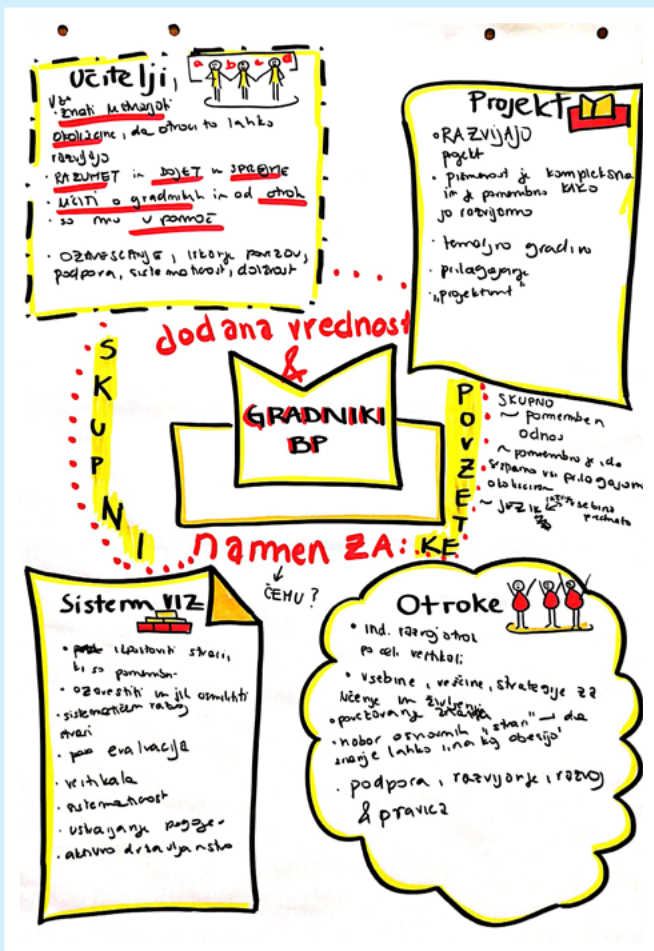 učitelji,
a b c d
vsi
• znati ustvarjati
okoliščine, da otroci to lahko
razvijajo
• RAZUMET in DOJET in SPREJME
• učiti o gradnikih in od otrok
• so mu v pomoč
• OZAVEŠČANJE, iskanje povezav,
podpora, sistematičnost,
Projekt
• RAZVIJAJO
pojekt
• pismenost je kompleksna
in je pomembno KAKO
jo razvijamo
• temeljno gradivo
• prilagajanje
• "projektivnt"
dodana vrednost
&
GRADNIKI
BP
SKUPNI
POVZETKE
SKUPNO
~ pomemben
odnos
~ pomembno je, da
vsi prilagajamo
~ jezik
namen ZA:
ČEMU?
Sistem VIZ
• izpostaviti stvari,
ki so pomembn
• ozavestiti in jih osmisliti
• sistematičen razvoj
stvari
• evalvacija
• vertikala
• sistematičnost
• ustvarjanje pogojev
• aktivno državljanstvo
Otroke
• ind. razvoj otrok
po celi vertikali
• vsebine, veščine, strategije za
učenje in življenje
• povezovanje znanja
• nabor osnovnih "stvari" – da
znanje lahko "na kaj obesijo"
• podpora, razvijanje, razvoj
& pravica